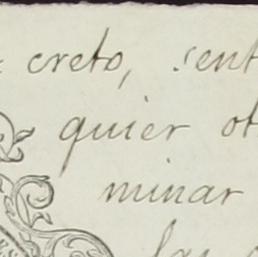 creto, sent
quier ot
minar